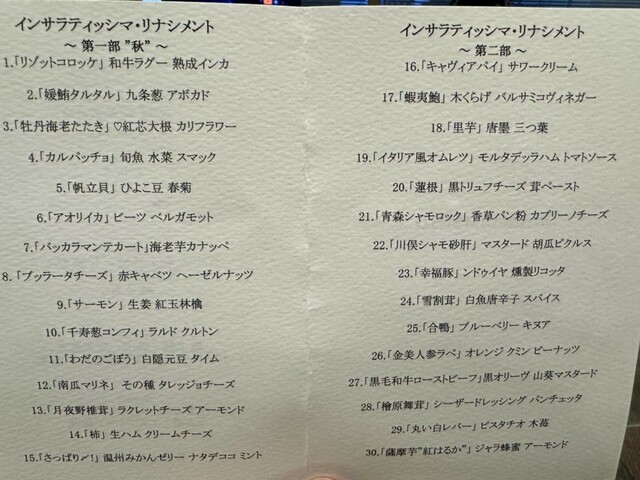 インサラティッシマ・リナシメント
～ 第一部 ”秋” ～
1.「リゾットコロッケ」 和牛ラグー 熟成インカ
2.「媛鮪タルタル」 九条葱 アボカド
3.「牡丹海老たたき」 ♡紅芯大根 カリフラワー
4.「カルパッチョ」 旬魚 水菜 スマック
5.「帆立貝」 ひよこ豆 春菊
6.「アオリイカ」 ビーツ ベルガモット
7.「バッカラマンテカート」海老芋カナッペ
8.「ブッラータチーズ」 赤キャベツ ヘーゼルナッツ
9.「サーモン」 生姜 紅玉林檎
10.「千寿葱コンフィ」 ラルド クルトン
11.「わだのごぼう」 白隠元豆 タイム
12.「南瓜マリネ」 その種 タレッジョチーズ
13.「月夜野椎茸」 ラクレットチーズ アーモンド
14.「柿」 生ハム クリームチーズ
15.「さっぱり〆!」 温州みかんゼリー ナタデココ ミント
インサラティッシマ・リナシメント
～ 第二部 ～
16.「キャヴィアパイ」 サワークリーム
17.「蝦夷鮑」 木くらげ バルサミコヴィネガー
18.「里芋」 唐墨 三つ葉
19.「イタリア風オムレツ」 モルタデッラハム トマトソース
20.「蓮根」 黒トリュフチーズ 茸ペースト
21.「青森シャモロック」 香草パン粉 カプリーノチーズ
22.「川俣シャモ砂肝」 マスタード 胡瓜ピクルス
23.「幸福豚」 ンドゥイヤ 燻製リコッタ
24.「雪割茸」 白魚唐辛子 スパイス
25.「合鴨」 ブルーベリー キヌア
26.「金美人参ラペ」 オレンジ クミン ピーナッツ
27.「黒毛和牛ローストビーフ」黒オリーヴ 山葵マスタード
28.「檜原舞茸」 シーザードレッシング パンチェッタ
29.「丸い白レバー」 ピスタチオ 木苺
30.「薩摩芋”紅はるか”」 ジャラ蜂蜜 アーモンド